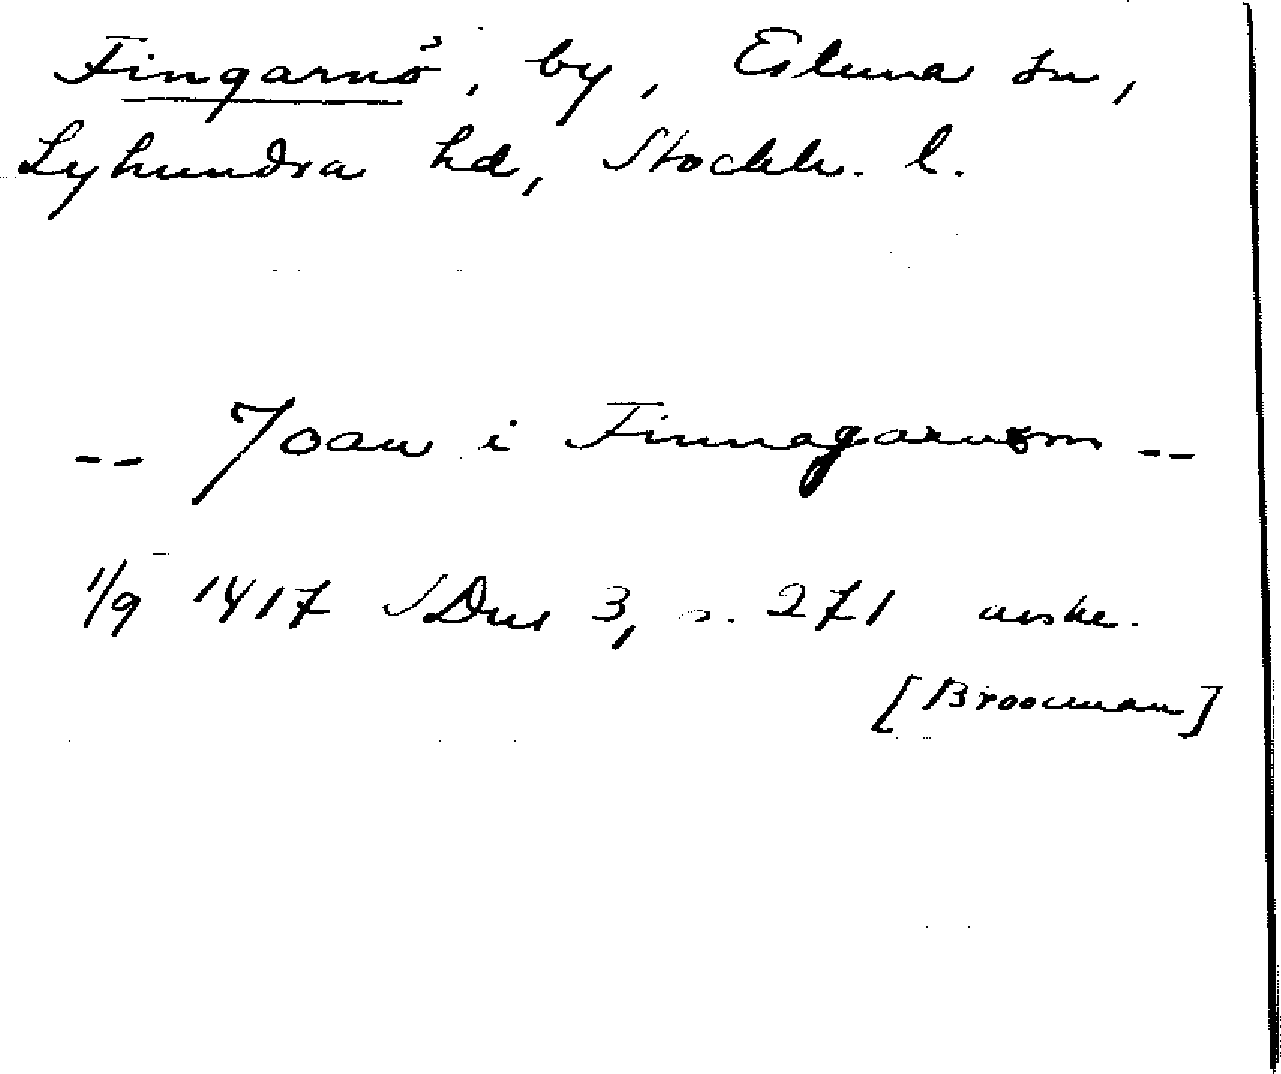 Fingarnö, by, Estuna sn,
Lyhundra hd, Stockh. l.
-- Joan i Finnagarnøm --
1/9 1417 SDns 3, s. 271 avskr.
[Broocman]